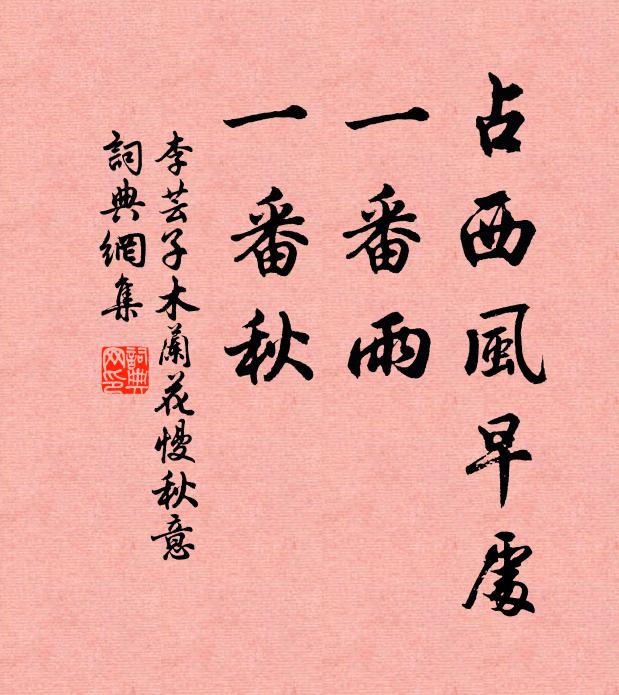 占西風早處
一番雨
一番秋
李芸子木蘭花慢秋意
詞典網集
詞典網印